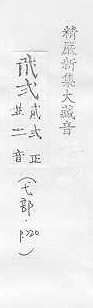 精嚴新集大藏音
弍
弍正
並二音
(弋部·P.220)